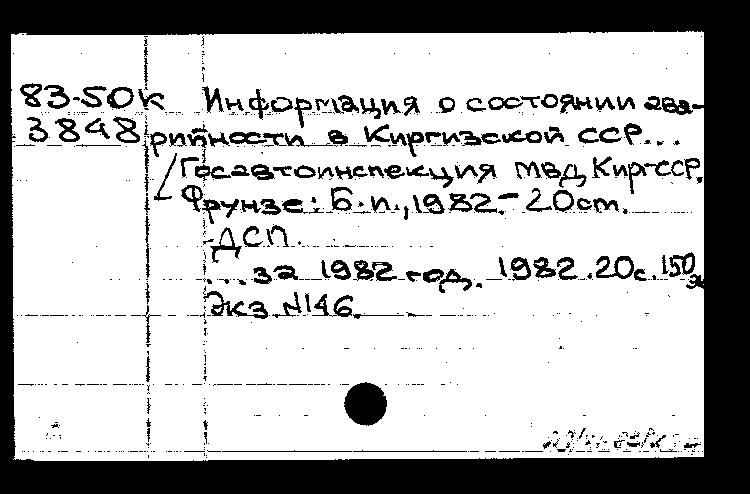 83-50к Информация о состоянии ава-
3848 рийности в Киргизской ССР...
/Госавтоинспекция МВД Кирг.ССР.
Фрунзе: Б.и., 1982.- 20см.
-ДСП.
...за 1982 год. 1982. 20с. 150 эк
Экз. №146.